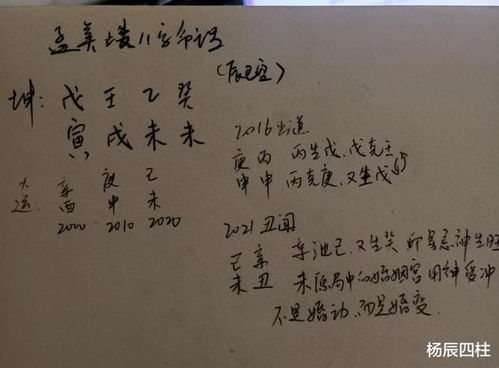 孟美岐八字命语
(辰巳空)
坤: 戊 壬 乙 癸
寅 戌 未 未
大运: 辛 庚 己
酉 申 未
2000 2010 2020
2016出道
庚 丙 丙生戊,戊克壬
申 申 丙克庚,又生戊
2021丑闻
己 辛 辛泄己,又生癸 忌神生旺
未 丑 未原局中的婚姻宫用神逢冲
不是婚动,而是婚变
杨辰四柱